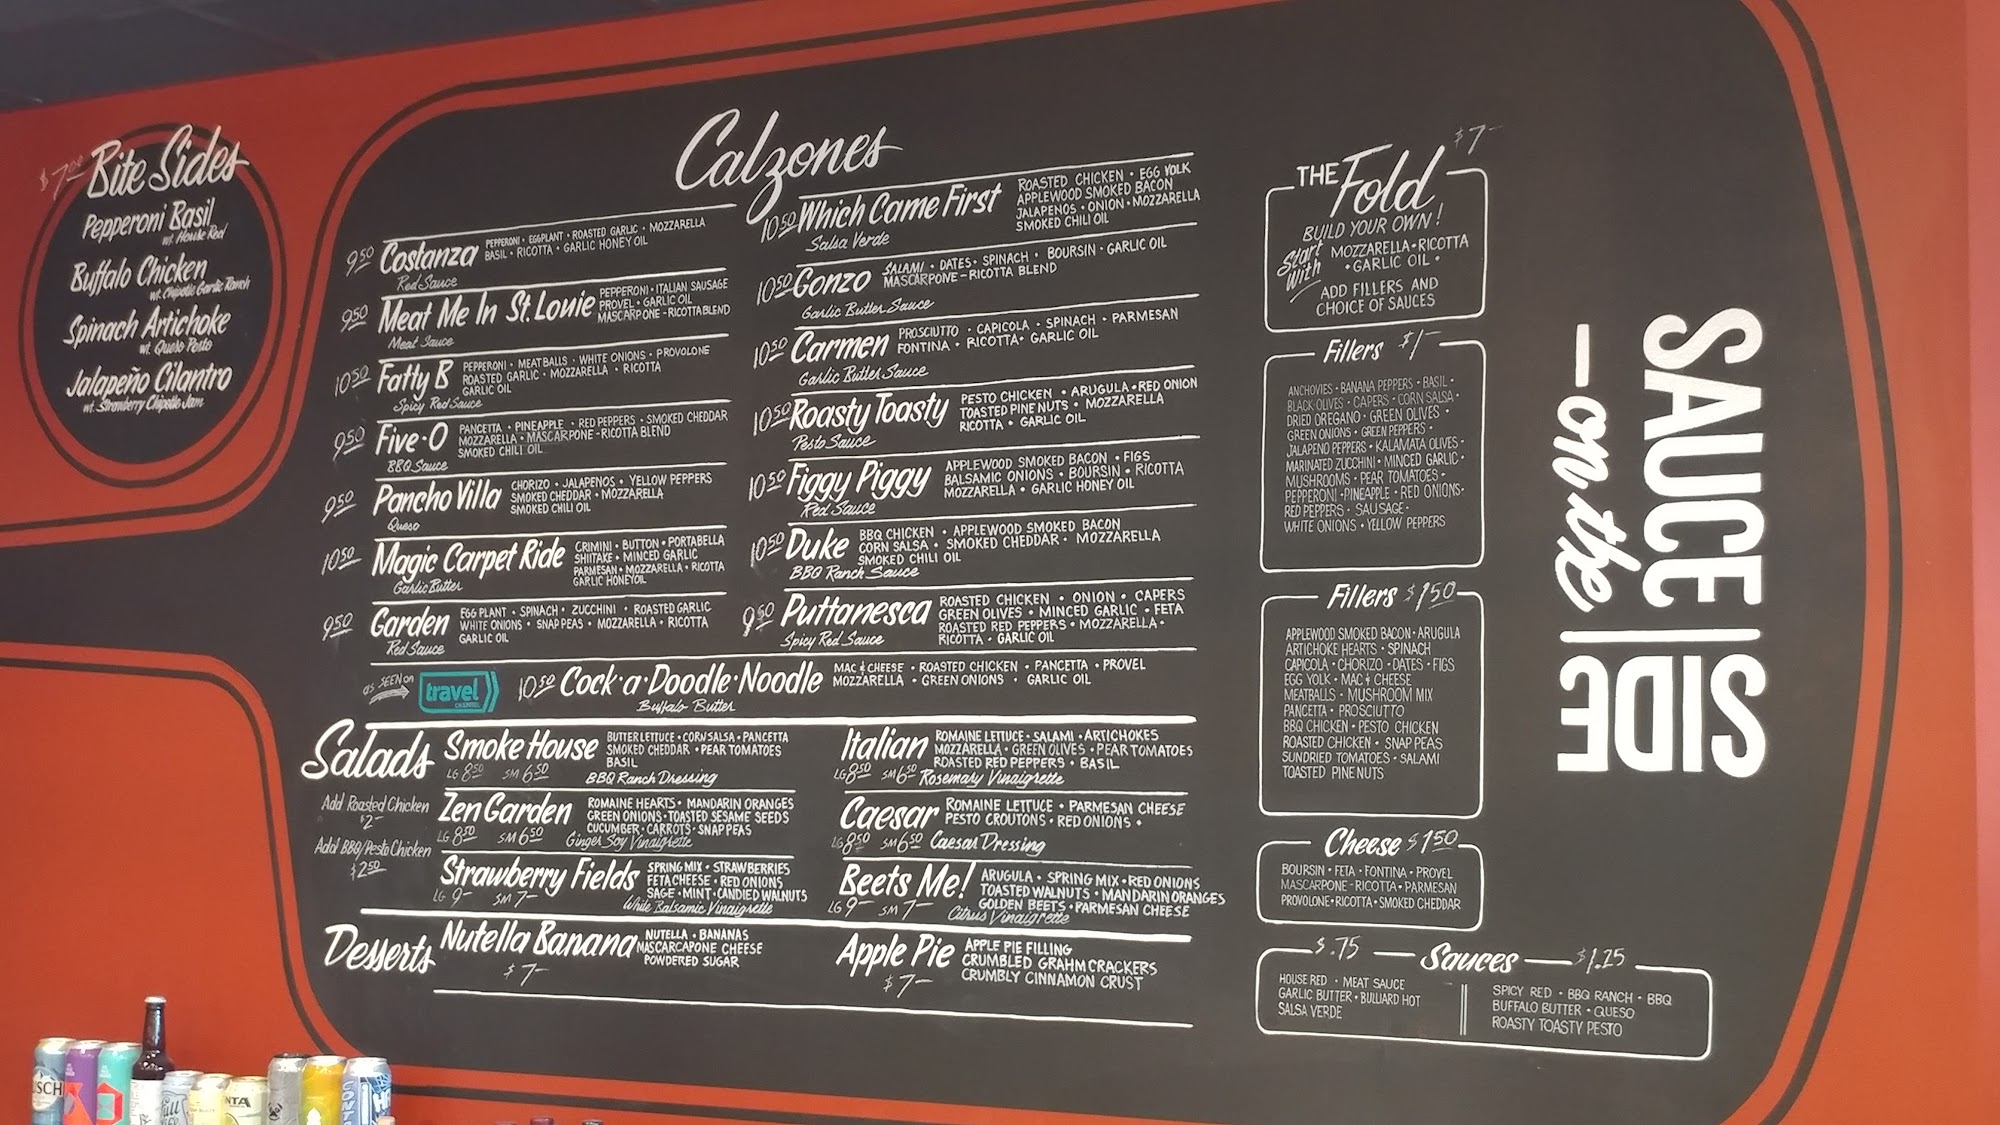 $7.00 Bite Sides
Pepperoni Basil
wt. House Red
Buffalo Chicken
wt. Chipotle Garlic Ranch
Spinach Artichoke
wt. Queso Pesto
Jalapeño Cilantro
wt. Strawberry Chipotle Jam
Calzones
9.50 Costanza
PEPPERONI • EGGPLANT • ROASTED GARLIC • MOZZARELLA
BASIL • RICOTTA • GARLIC HONEY OIL
Red Sauce
9.50 Meat Me In St. Louie
PEPPERONI • ITALIAN SAUSAGE
PROVEL • GARLIC OIL
MASCARPONE-RICOTTA BLEND
Meat Sauce
10.50 Fatty B
PEPPERONI • MEATBALLS • WHITE ONIONS • PROVOLONE
ROASTED GARLIC • MOZZARELLA • RICOTTA
GARLIC OIL
Spicy Red Sauce
9.50 Five-O
PANCETTA • PINEAPPLE • RED PEPPERS • SMOKED CHEDDAR
MOZZARELLA • MASCARPONE-RICOTTA BLEND
SMOKED CHILI OIL
BBQ Sauce
9.50 Pancho Villa
CHORIZO • JALAPENOS • YELLOW PEPPERS
SMOKED CHEDDAR • MOZZARELLA
SMOKED CHILI OIL
Queso
10.50 Magic Carpet Ride
CRIMINI • BUTTON • PORTABELLA
SHIITAKE • MINCED GARLIC
PARMESAN • MOZZARELLA • RICOTTA
GARLIC HONEY OIL
Garlic Butter
9.50 Garden
EGGPLANT • SPINACH • ZUCCHINI • ROASTED GARLIC
WHITE ONIONS • SNAP PEAS • MOZZARELLA • RICOTTA
GARLIC OIL
Red Sauce
10.50 Which Came First
ROASTED CHICKEN • EGG YOLK
APPLEWOOD SMOKED BACON
JALAPENOS • ONION • MOZZARELLA
SMOKED CHILI OIL
Salsa Verde
10.50 Gonzo
SALAMI • DATES • SPINACH • BOURSIN • GARLIC OIL
MASCARPONE-RICOTTA BLEND
Garlic Butter Sauce
10.50 Carmen
PROSCIUTTO • CAPICOLA • SPINACH • PARMESAN
FONTINA • RICOTTA • GARLIC OIL
Garlic Butter Sauce
10.50 Roasty Toasty
PESTO CHICKEN • ARUGULA • RED ONION
TOASTED PINE NUTS • MOZZARELLA
RICOTTA • GARLIC OIL
Pesto Sauce
10.50 Figgy Piggy
APPLEWOOD SMOKED BACON • FIGS
BALSAMIC ONIONS • BOURSIN • RICOTTA
MOZZARELLA • GARLIC HONEY OIL
Red Sauce
10.50 Duke
BBQ CHICKEN • APPLEWOOD SMOKED BACON
CORN SALSA • SMOKED CHEDDAR • MOZZARELLA
SMOKED CHILI OIL
BBQ Ranch Sauce
9.50 Puttanesca
ROASTED CHICKEN • ONION • CAPERS
GREEN OLIVES • MINCED GARLIC • FETA
ROASTED RED PEPPERS • MOZZARELLA •
RICOTTA • GARLIC OIL
Spicy Red Sauce
as SEEN on travel CHANNEL
10.50 Cock•a•Doodle•Noodle
MAC & CHEESE • ROASTED CHICKEN • PANCETTA • PROVEL
MOZZARELLA • GREEN ONIONS • GARLIC OIL
Buffalo Butter
Salads
Add Roasted Chicken
$2-
Add BBQ/Pesto Chicken
$2.50
Smoke House
BUTTER LETTUCE • CORN SALSA • PANCETTA
SMOKED CHEDDAR • PEAR TOMATOES
BASIL
LG 8.50 SM 6.50 BBQ Ranch Dressing
Zen Garden
ROMAINE HEARTS • MANDARIN ORANGES
GREEN ONIONS • TOASTED SESAME SEEDS
CUCUMBER • CARROTS • SNAP PEAS
LG 8.50 SM 6.50 Ginger Soy Vinaigrette
Strawberry Fields
SPRING MIX • STRAWBERRIES
FETA CHEESE • RED ONIONS
SAGE • MINT • CANDIED WALNUTS
LG 9- SM 7- White Balsamic Vinaigrette
Italian
ROMAINE LETTUCE • SALAMI • ARTICHOKES
MOZZARELLA • GREEN OLIVES • PEAR TOMATOES
ROASTED RED PEPPERS • BASIL
LG 8.50 SM 6.50 Rosemary Vinaigrette
Caesar
ROMAINE LETTUCE • PARMESAN CHEESE
PESTO CROUTONS • RED ONIONS •
LG 8.50 SM 6.50 Caesar Dressing
Beets Me!
ARUGULA • SPRING MIX • RED ONIONS
TOASTED WALNUTS • MANDARIN ORANGES
GOLDEN BEETS • PARMESAN CHEESE
LG 9- SM 7- Citrus Vinaigrette
Desserts
Nutella Banana
NUTELLA • BANANAS
MASCARCAPONE CHEESE
POWDERED SUGAR
$7-
Apple Pie
APPLE PIE FILLING
CRUMBLED GRAHM CRACKERS
CRUMBLY CINNAMON CRUST
$7-
THE Fold $7-
BUILD YOUR OWN!
Start With
MOZZARELLA • RICOTTA
• GARLIC OIL •
ADD FILLERS AND
CHOICE OF SAUCES
Fillers $1-
ANCHOVIES • BANANA PEPPERS • BASIL •
BLACK OLIVES • CAPERS • CORN SALSA •
DRIED OREGANO • GREEN OLIVES •
GREEN ONIONS • GREEN PEPPERS •
JALAPENO PEPPERS • KALAMATA OLIVES •
MARINATED ZUCCHINI • MINCED GARLIC •
MUSHROOMS • PEAR TOMATOES •
PEPPERONI • PINEAPPLE • RED ONIONS •
RED PEPPERS • SAUSAGE •
WHITE ONIONS • YELLOW PEPPERS
Fillers $1.50
APPLEWOOD SMOKED BACON • ARUGULA
ARTICHOKE HEARTS • SPINACH
CAPICOLA • CHORIZO • DATES • FIGS
EGG YOLK • MAC & CHEESE
MEATBALLS • MUSHROOM MIX
PANCETTA • PROSCIUTTO
BBQ CHICKEN • PESTO CHICKEN
ROASTED CHICKEN • SNAP PEAS
SUNDRIED TOMATOES • SALAMI
TOASTED PINE NUTS
Cheese $1.50
BOURSIN • FETA • FONTINA • PROVEL
MASCARPONE-RICOTTA • PARMESAN
PROVOLONE • RICOTTA • SMOKED CHEDDAR
$.75 Sauces $1.25
HOUSE RED • MEAT SAUCE
GARLIC BUTTER • BULLIARD HOT
SALSA VERDE
SPICY RED • BBQ RANCH • BBQ
BUFFALO BUTTER • QUESO
ROASTY TOASTY PESTO
SAUCE
on the
SIDE